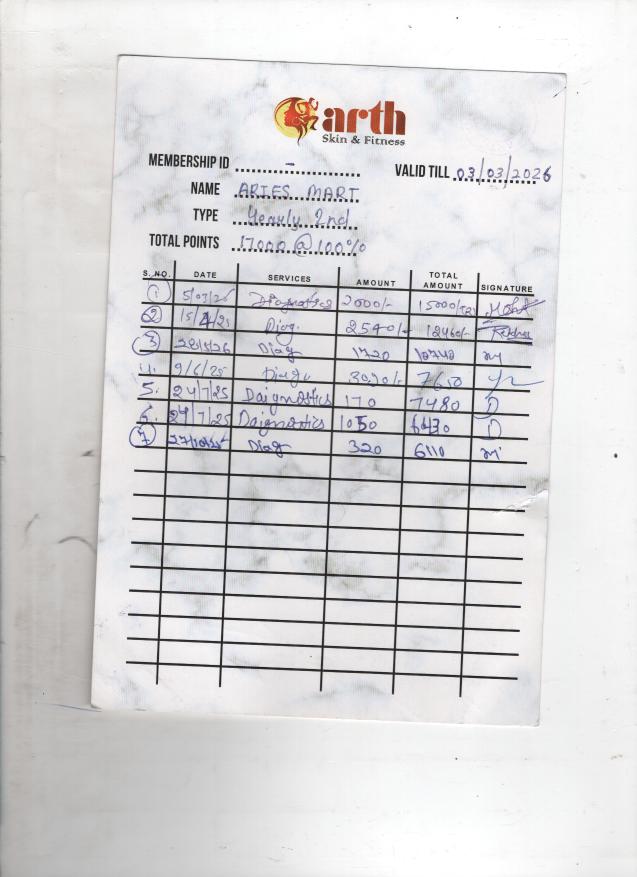 arth
Skin & Fitness
MEMBERSHIP ID -
VALID TILL 03/03/2026
NAME ARIES MART
TYPE Yearly 2nd
TOTAL POINTS 17000 @ 100%
S. NO. DATE SERVICES AMOUNT TOTAL AMOUNT SIGNATURE
1 5/03/25 Diagnostics 2000/- 15000/-
2 15/4/25 Diag. 2540/- 12460/-
3 Diag 1720 10740
4. 9/6/25 3090/- 7650
5. 24/7/25 Daignostics 170 7480
6. 29/7/25 Daignostics 1050 6430
7 Diag 320 6110